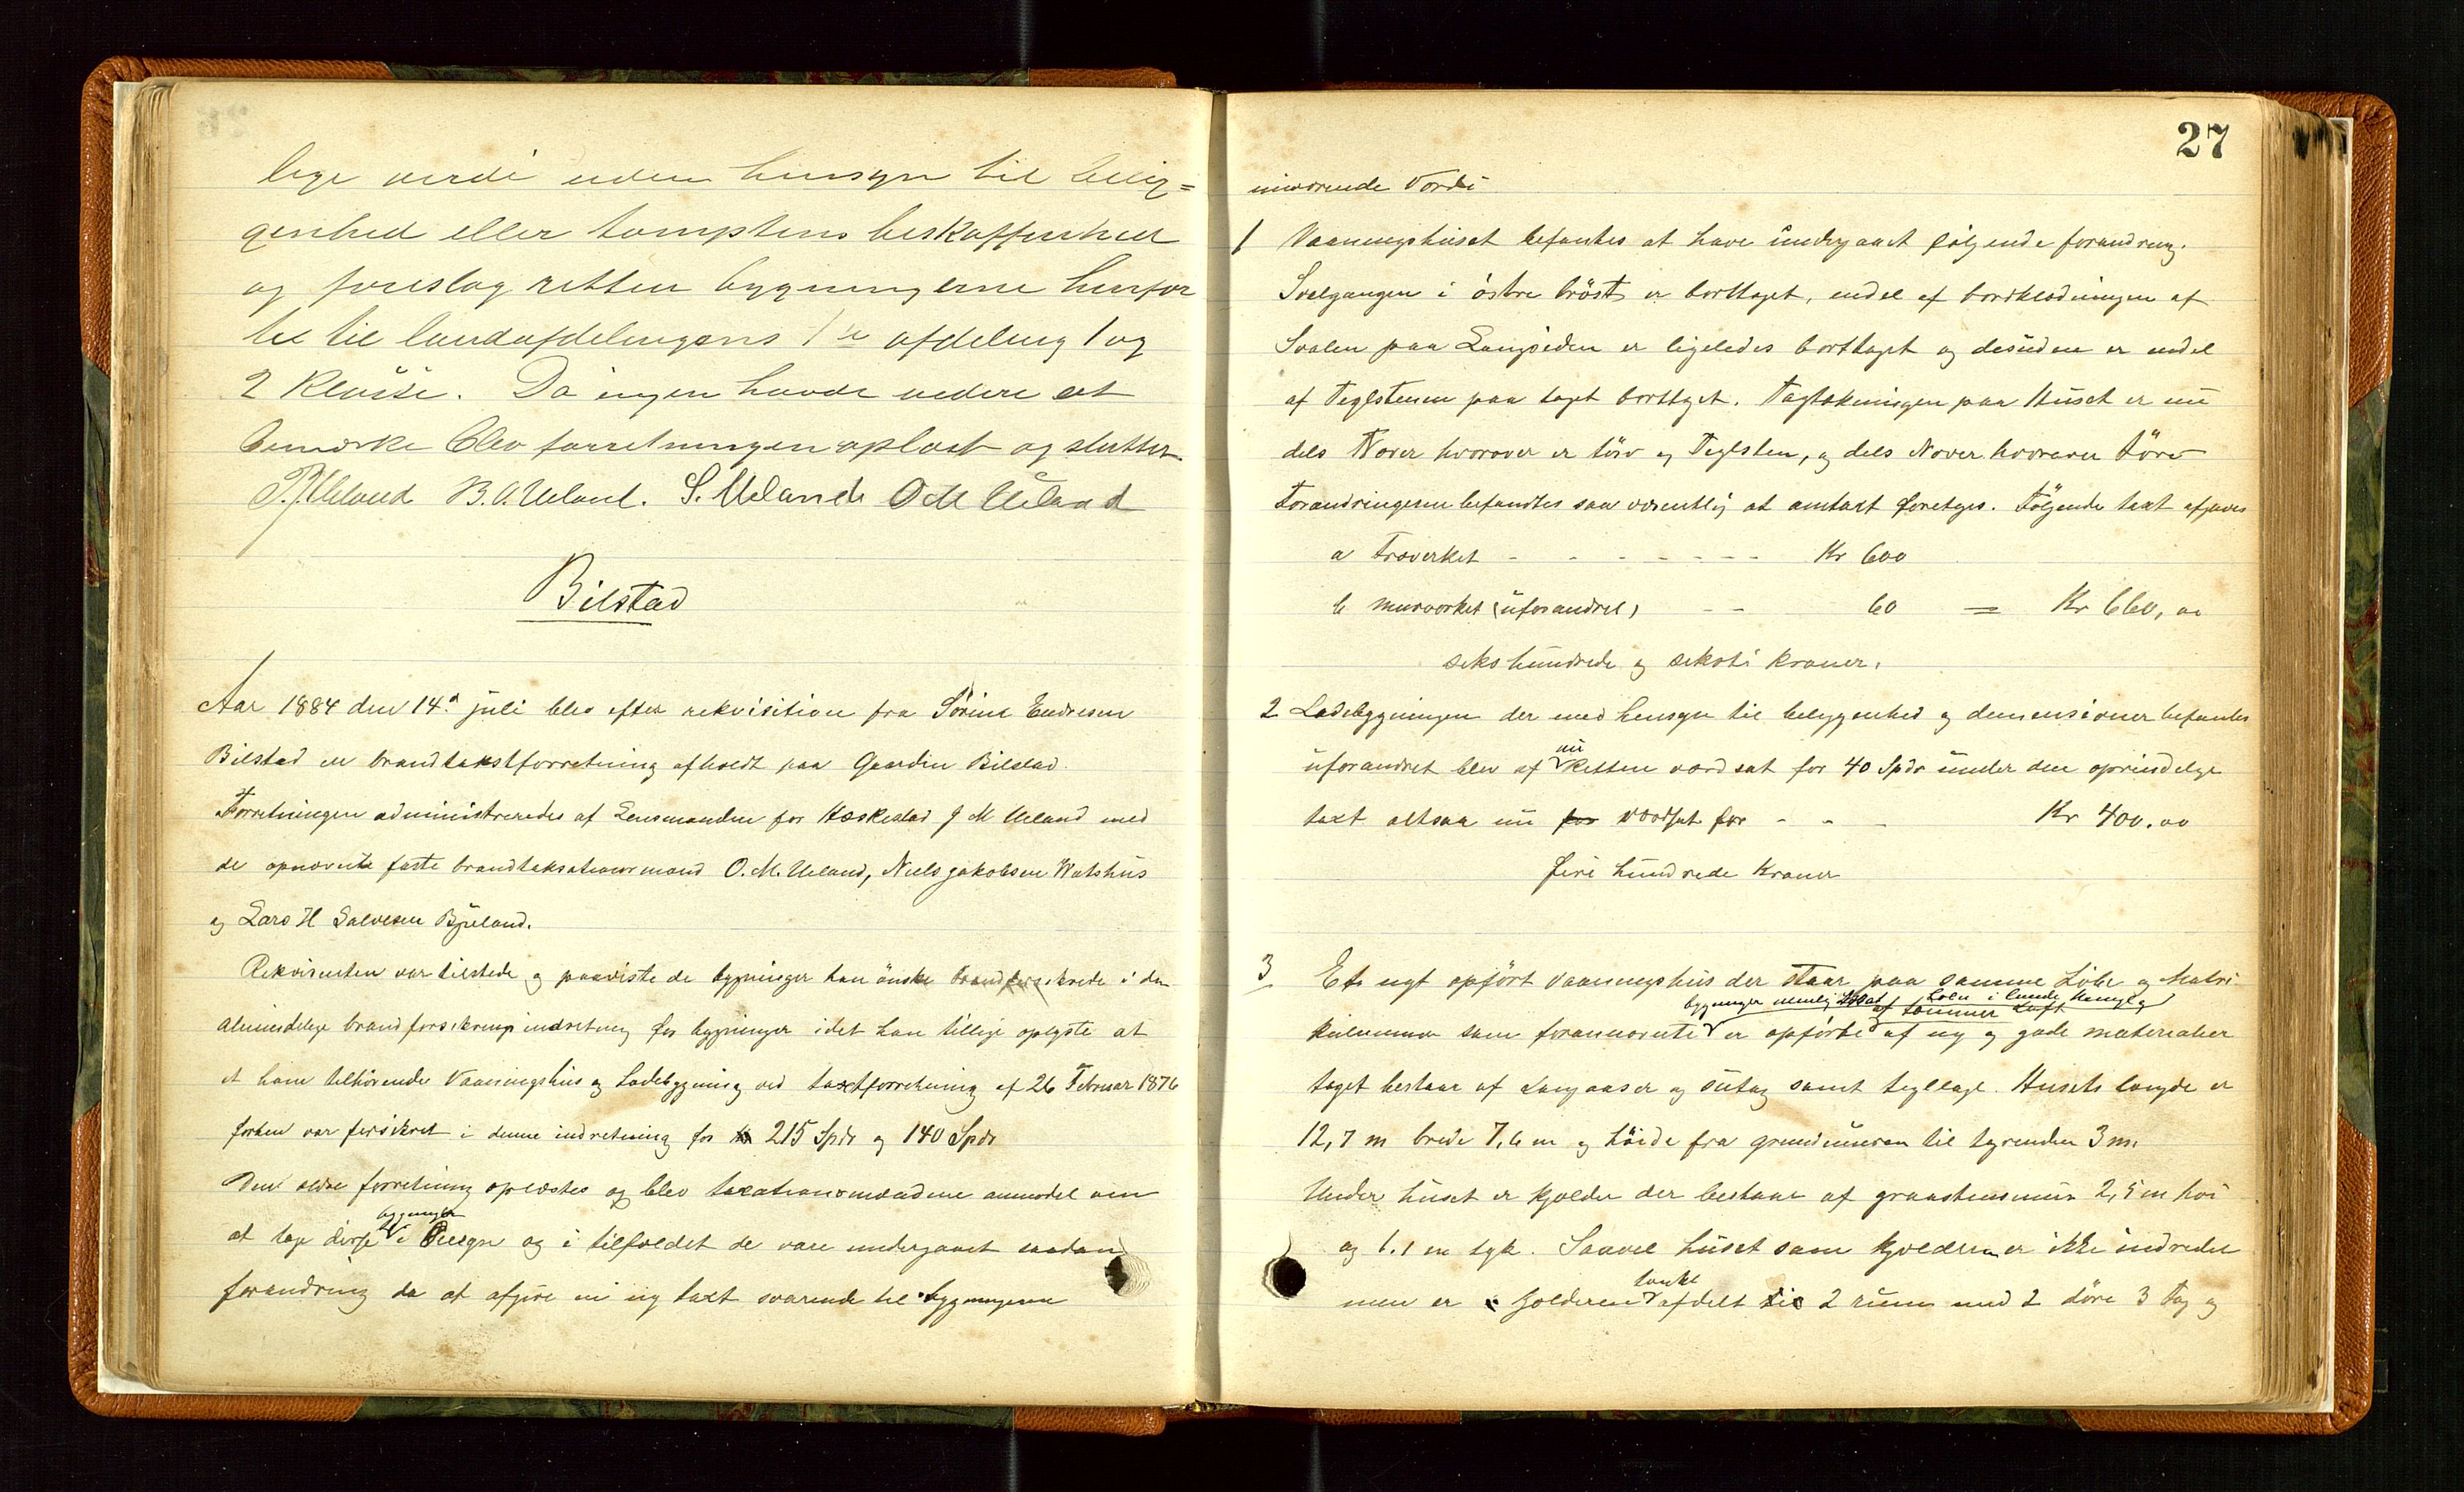 lige verdi uden hensyn til belig=
genhed eller tomptens beskaffenhed
og foreslog retten bygningerne henfør
tet til landafdelingens 1ste afdeling 1 og
2 klasse. Da ingen havde videre at
bemærke blev forretningen oplæst og sluttet.
B. O. Ueland. S. Ueland O M Ueland
Bilstad
Aar 1884 den 14de juli blev efter rekvisition fra Sørine Endresen
Bilstad en brandtakstforretning afholdt paa Gaarden Bilstad.
Forretningen administreredes af Lensmanden for Heskestad J M Ueland med
de opnævnte faste brandtaksationsmænd O. M. Ueland, Niels Jakobsen Watshus
og Lars H Salvesen Bjuland.
Rekvirenten var tilstede og paaviste de bygninger han ønske brandforsikrede i den
almindelige brandforsikrings indretning for bygninger idet han tillige oplyste at
et ham tilhørende Vaaningshus og Ladebygning ved taxtforretning af 26 Februar 1876
forhen var forsikret i denne indretning for 215 Spdr og 140 Spdr
Den ældre forretning oplæstes og blev taxationsmændene anmodet om
bygninger
at tage disse i Øiesyn og i tilfældet de vare undergaaet saadan
forandring da at afgive en ny taxt svarende til bygningerne
27
nuværende Værdi
1 Vaaningshuset befantes at have undergaaet følgende forandring.
Svalgangen i østre brøst er borttaget, endel af bordklædningen af
Svalen paa Langsiden er ligeledes borttaget og desuden er endel
af Teglstenen paa taget borttaget. Tagtækningen paa Huset er nu
dels Næver hvorover er tørv og Teglsten, og dels Næver hvorover tørv
Forandringerne befandtes saa væsentlig at omtaxt foretages. Følgende taxt afgaves
a Træverket - - - - - - - Kr 600
b murverket (uforandret) - - 60 = Kr 660, 00
seks hundrede og seksti kroner.
2 Ladebygningen der med hensyn til beliggenhed og dimensioner befantes
nu
uforandret blev af Retten værdsat for 40 Spdr under den oprindelige
taxt altsaa nu for værdsat for - - - Kr 400.00
fire hundrede kroner
3 Et nyt opført Vaaningshus der staar paa samme Løbe og Matri
bygninger nemlig af tømmer Loft
kulnummer som forannævnte er opførte af ny og gode materialier
taget bestaar af Langaaser og sutag samt tegllagt. Husets længde er
12,7 m brede 7,6 m og høide fra grundmuren til tagrenden 3 m.
Under huset er kjelder der bestaar af graastensmur 2,5 m høi
og 1.1 m tyk. Saavel huset som kjelderen er ikke indredet
tænkt
men er kjelderen afdelt til 2 rum med 2 døre 3 fag og